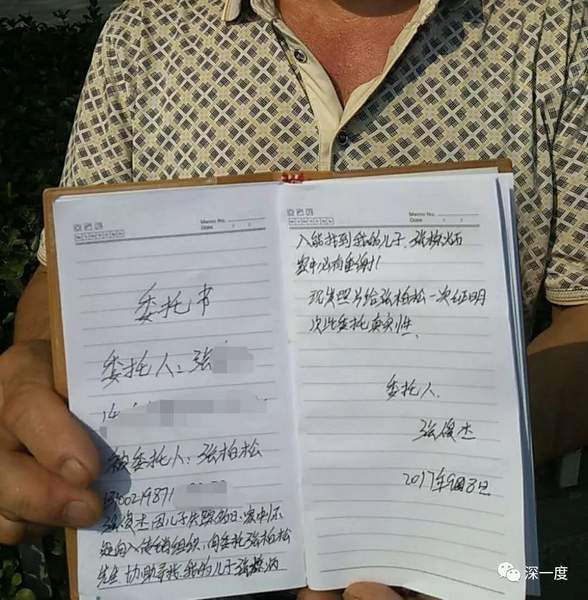 Memo No.
Date / /
委托书
委托人:张
14
被委托人:张柏松
0219871
张俊杰因儿子失踪 日,家中怀
疑 入传销组织,向委托张柏松
先生协助寻找我的儿子张
Memo No.
Date / /
入能找到我的儿子,张栋
家中必有重谢!
现发照片给张柏松一次证明
次此委托真实性.
委托人.
张俊杰
2017年9月8日
深一度